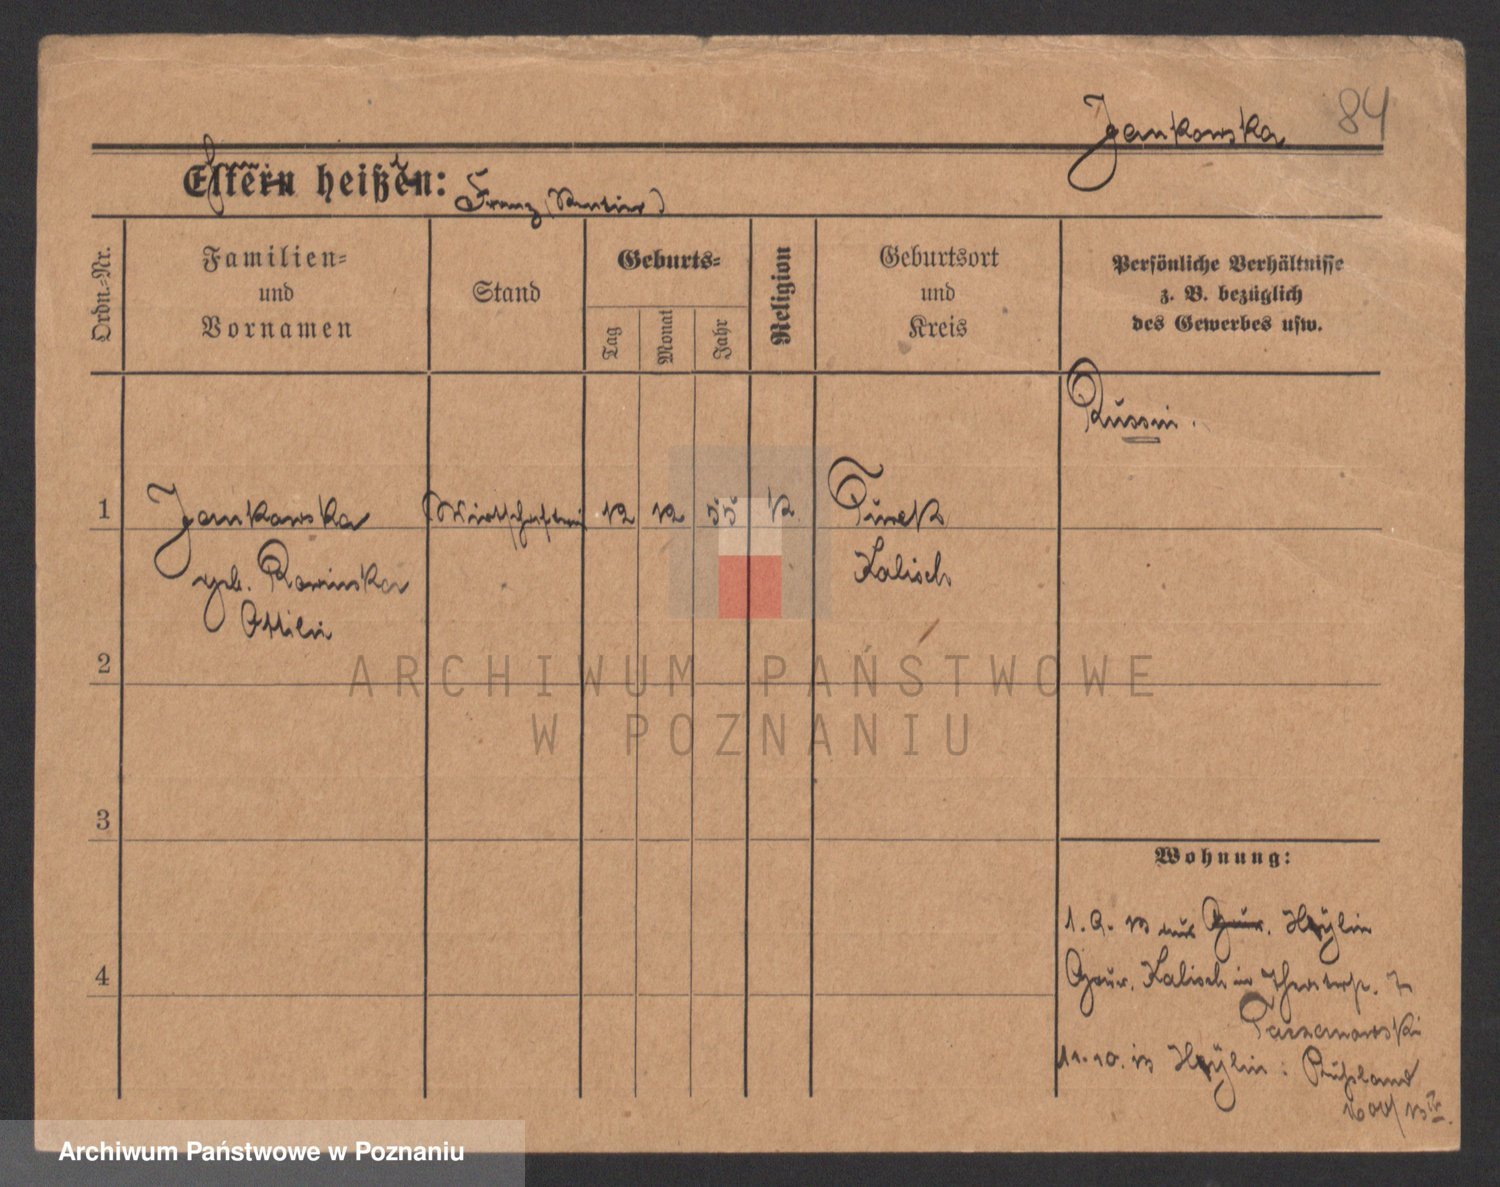 Jankowska 84
Eltern heißen: Franz (Rentier)
Ordn.-Nr.
Familien-
und
Vornamen
Stand
Geburts-
Tag
Monat
Jahr
Religion
Geburtsort
und
Kreis
Persönliche Verhältnisse
z. B. bezüglich
des Gewerbes usw.
Russin.
1 Jankowska Wirtschafterin 12 12 55 K. Turek
geb. Rawinska Kalisch
Ottilie
2
3
Wohnung:
1.9. 13 aus Gouv. Heylin
4
Gouv. Kalisch in Theaterstr. 7
11.10. 13 Heylin: Rußland
ARCHIWUM PAŃSTWOWE
W POZNANIU
Archiwum Państwowe w Poznaniu